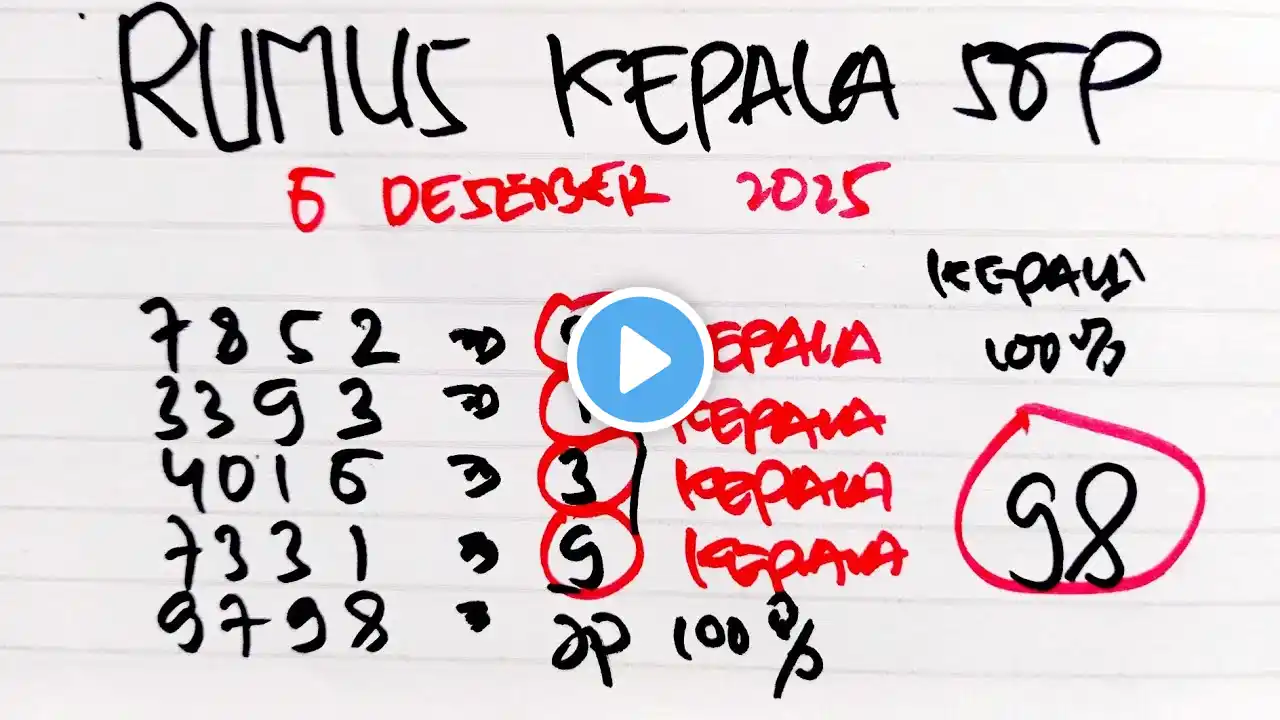 RUMUS KEPALA SDP
6 DESEMBER 2025
KEPALA
100%
7852 ⇒ KEPALA
3393 ⇒ 1 KEPALA
4016 ⇒ 3 KEPALA
7331 ⇒ 9 KEPALA
98
9798 ⇒ 2P 100%